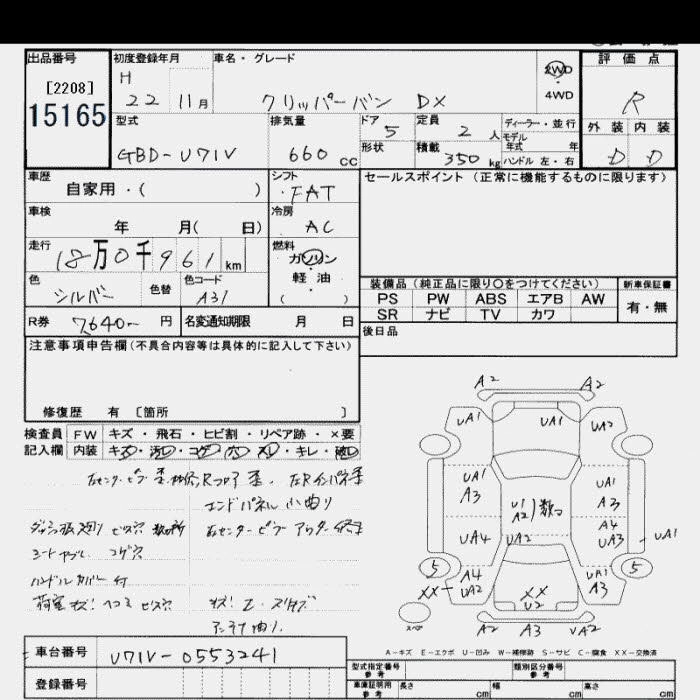 出品番号
[2208]
15165
初度登録年月
H
22 11月
車名・グレード
クリッパーバン DX
2WD
4WD
評価点
R
外装 内装
D D
型式
GBD-U71V
排気量
660 cc
ドア
5
形状
定員
2 人
積載
350 kg
ディーラー・並行
モデル
年式 年
ハンドル 左・右
車歴
自家用・( )
シフト
FAT
車検
年 月( 日)
冷房
AC
走行
18万0千961 km
燃料
ガソリン
・
軽油
( )
色
シルバー
色替
色コード
A31
R券 7640- 円
名変通知期限 月 日
セールスポイント (正常に機能するものに限ります)
装備品 (純正品に限り〇をつけてください)
PS PW ABS エアB AW
SR ナビ TV カワ
新車保証書
有・無
後日品
注意事項申告欄(不具合内容等は具体的に記入して下さい)
修復歴 有 〔箇所 〕
検査員 FW キズ・飛石・ヒビ割・リペア跡・×要
記入欄 内装 キズ・汚レ・コゲ・穴・スレ・キレ・破レ
エンドパネル 小曲り
ビス穴
コゲ穴
ハンドルカバー 付
荷室 キズ! ヘコミ ビス穴
A2 A2
UA1 UA1 UA2
UA1
A3
U1
A2
数
UA1
A3
UA4 UA2
A4
UA3
UA1
5 5
A4
UA2
XX
XX
U2
UA1
A3
スペア
A2 A3 UA2
A-キズ E-エクボ U-凹み W-補修跡 S-サビ C-腐食 XX-交換済
車台番号
U71V-0553241
登録番号
型式指定番号
参考
類別区分番号
参考
車庫証明用
参考
長さ cm 幅 cm 高さ cm